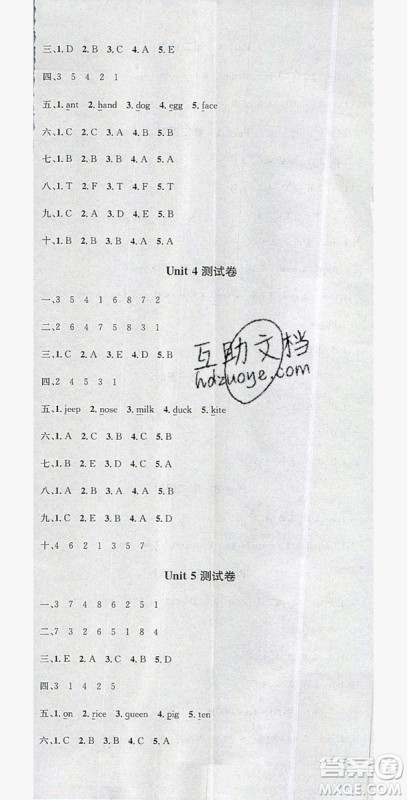 三、1. D 2. B 3. C 4. A 5. E
四、3 5 4 2 1
五、1. ant 2. hand 3. dog 4. egg 5. face
六、1. C 2. C 3. A 4. B 5. B
七、1. B 2. B 3. A 4. A 5. B
八、1. T 2. F 3. T 4. T 5. F
九、1. C 2. C 3. A 4. C 5. A
十、1. B 2. B 3. B 4. A 5. A
Unit 4 测试卷
一、3 5 4 1 6 8 7 2
二、2 6 4 7 5 8 3 1
三、1. C 2. D 3. B 4. E 5. A
四、2 4 5 3 1
五、1. jeep 2. nose 3. milk 4. duck 5. kite
六、1. A 2. B 3. A 4. B 5. B
七、1. D 2. E 3. C 4. B 5. A
八、1. A 2. B 3. A 4. B 5. B
九、1. C 2. D 3. B 4. E 5. A
十、4 6 2 1 3 5 7
Unit 5 测试卷
一、3 7 4 8 6 2 5 1
二、7 3 2 6 5 1 8 4
三、1. E 2. A 3. C 4. B 5. D
四、3 1 4 2 5
五、1. on 2. rice 3. queen 4. pig 5. ten
六、1. C 2. B 3. C 4. B 5. A
互助文档
hdzuoye.com
答案圈
MXQE.COM